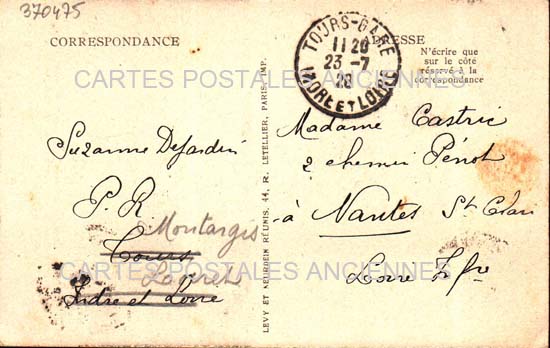 370475
CORRESPONDANCE
ADRESSE
N'écrire que
sur le côté
réservé à la
correspondance
TOURS-GARE
11 20
23 -7
28
INDRE ET LOIRE
CARTES POSTALES ANCIENNES
Suzanne Dejardin
P. R
Montargis
Tours
Loiret
Indre et Loire
LEVY ET NEURDEIN RÉUNIS, 44, R. LETELLIER, PARIS-IMP.
Madame Castric
2 chemin Pénot
à Nantes St
Loire Infre
CARTES POSTALES ANCIENNES